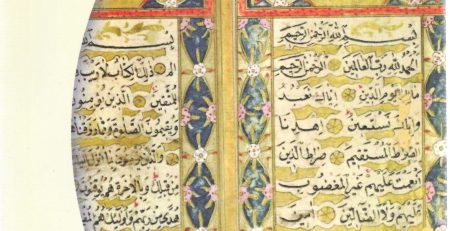 بسم الله الرحمن الرحيم
الحمد لله رب العالمين الرحمن الرحيم
مالك يوم الدين اياك نعبد
واياك نستعين اهدنا
الصراط المستقيم صراط الذين
انعمت عليهم غير المغضوب
عليهم ولا الضالين امين
بسم
الم ذلك الكتاب لا ريب
للمتقين الذين يؤمنون
ويقيمون الصلوة ومما رزقنا
والذين يؤمنون بما انزل اليك
من قبلك وبالاخرة هم يوقنون
هدى من ربهم واولئك هم